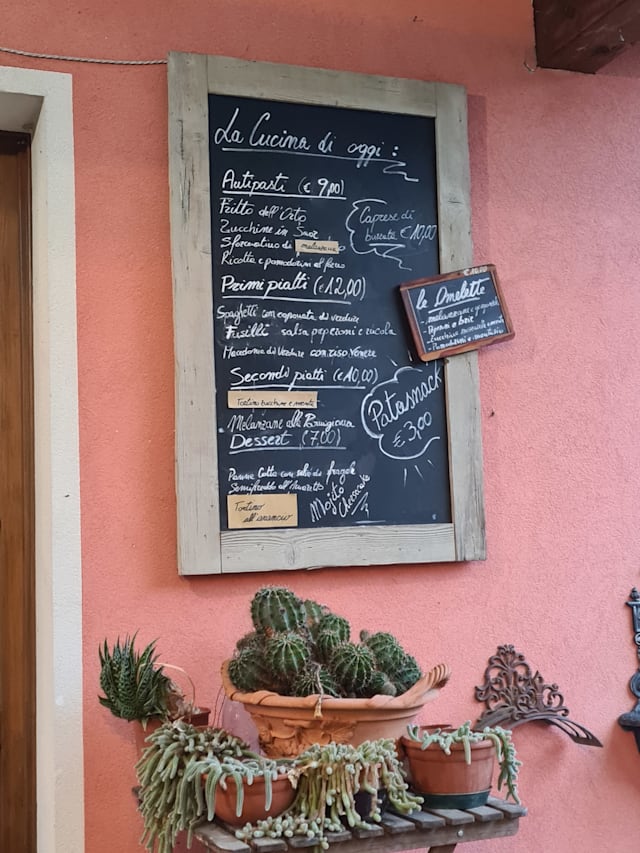 La Cucina di oggi :
Antipasti (€ 9,00)
Fritto dell'Orto
Zucchine in Saor
Sformatino di melanzane
Ricotta e pomodorini al forno
Caprese di
burrata €10,00
Primi piatti (€12,00)
Spaghetti con caponata di verdure
Fusilli salsa peperoni e rucola
Macedonia di Verdure con riso Venere
Secondi piatti (€10,00)
Tortino zucchine e menta
Melanzane alla Parmigiana
Patasnack
€ 3,00
Dessert (7,00)
Panna Cotta con salsa di fragole
Semifreddo all'Amaretto
Tortino
all'arancio
Mojito
€10,00
le Omelette
- melanzane e
- Peperoni e brie
- Zucchine
- Pomodorini e